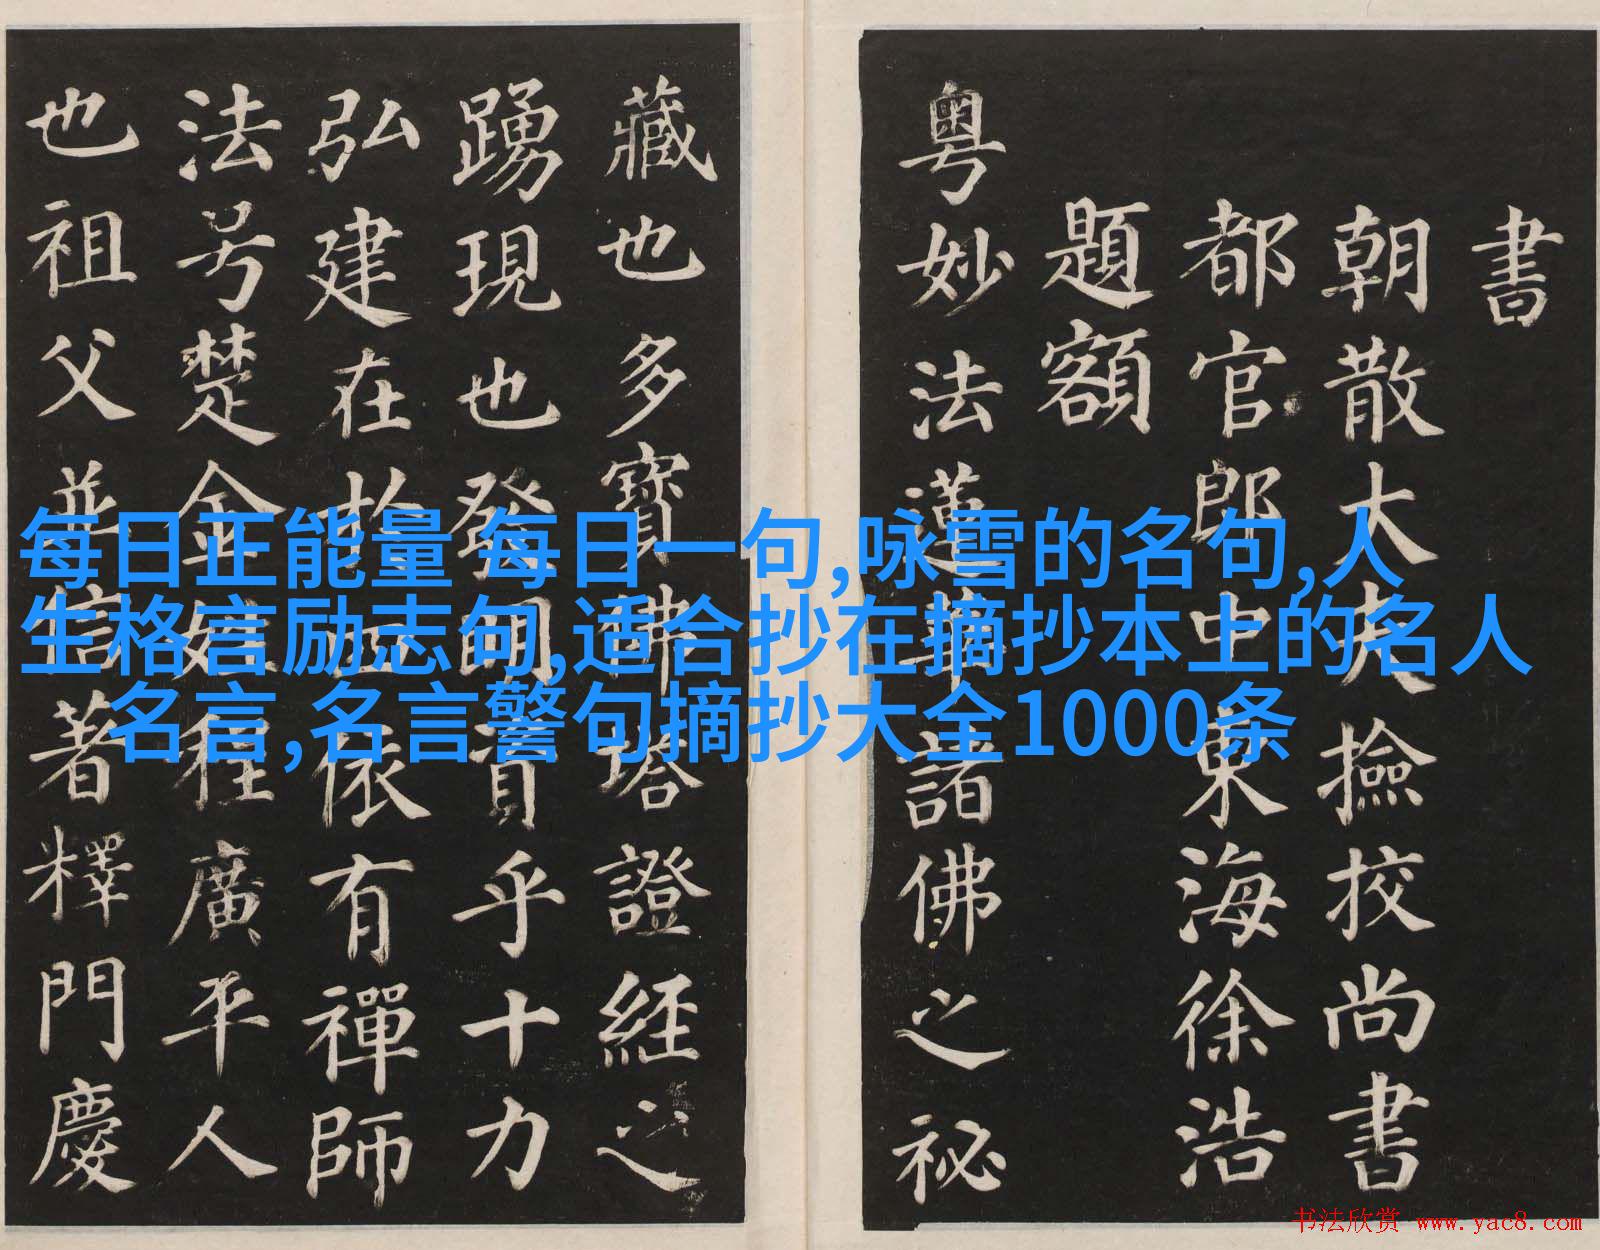 書
朝散大夫撿挍尚書
都官郎中東海徐浩
題額
粵妙法蓮華諸佛之祕
藏也多寶佛塔證經之
踴現也發明資乎十力
弘建在於四依有禪師
法号楚金姓程廣平人
也祖父並信著釋門慶
每日正能量 每日一句,咏雪的名句,人
生格言励志句,适合抄在摘抄本上的名人
名言,名言警句摘抄大全1000条
书法欣赏 www.yac8.com